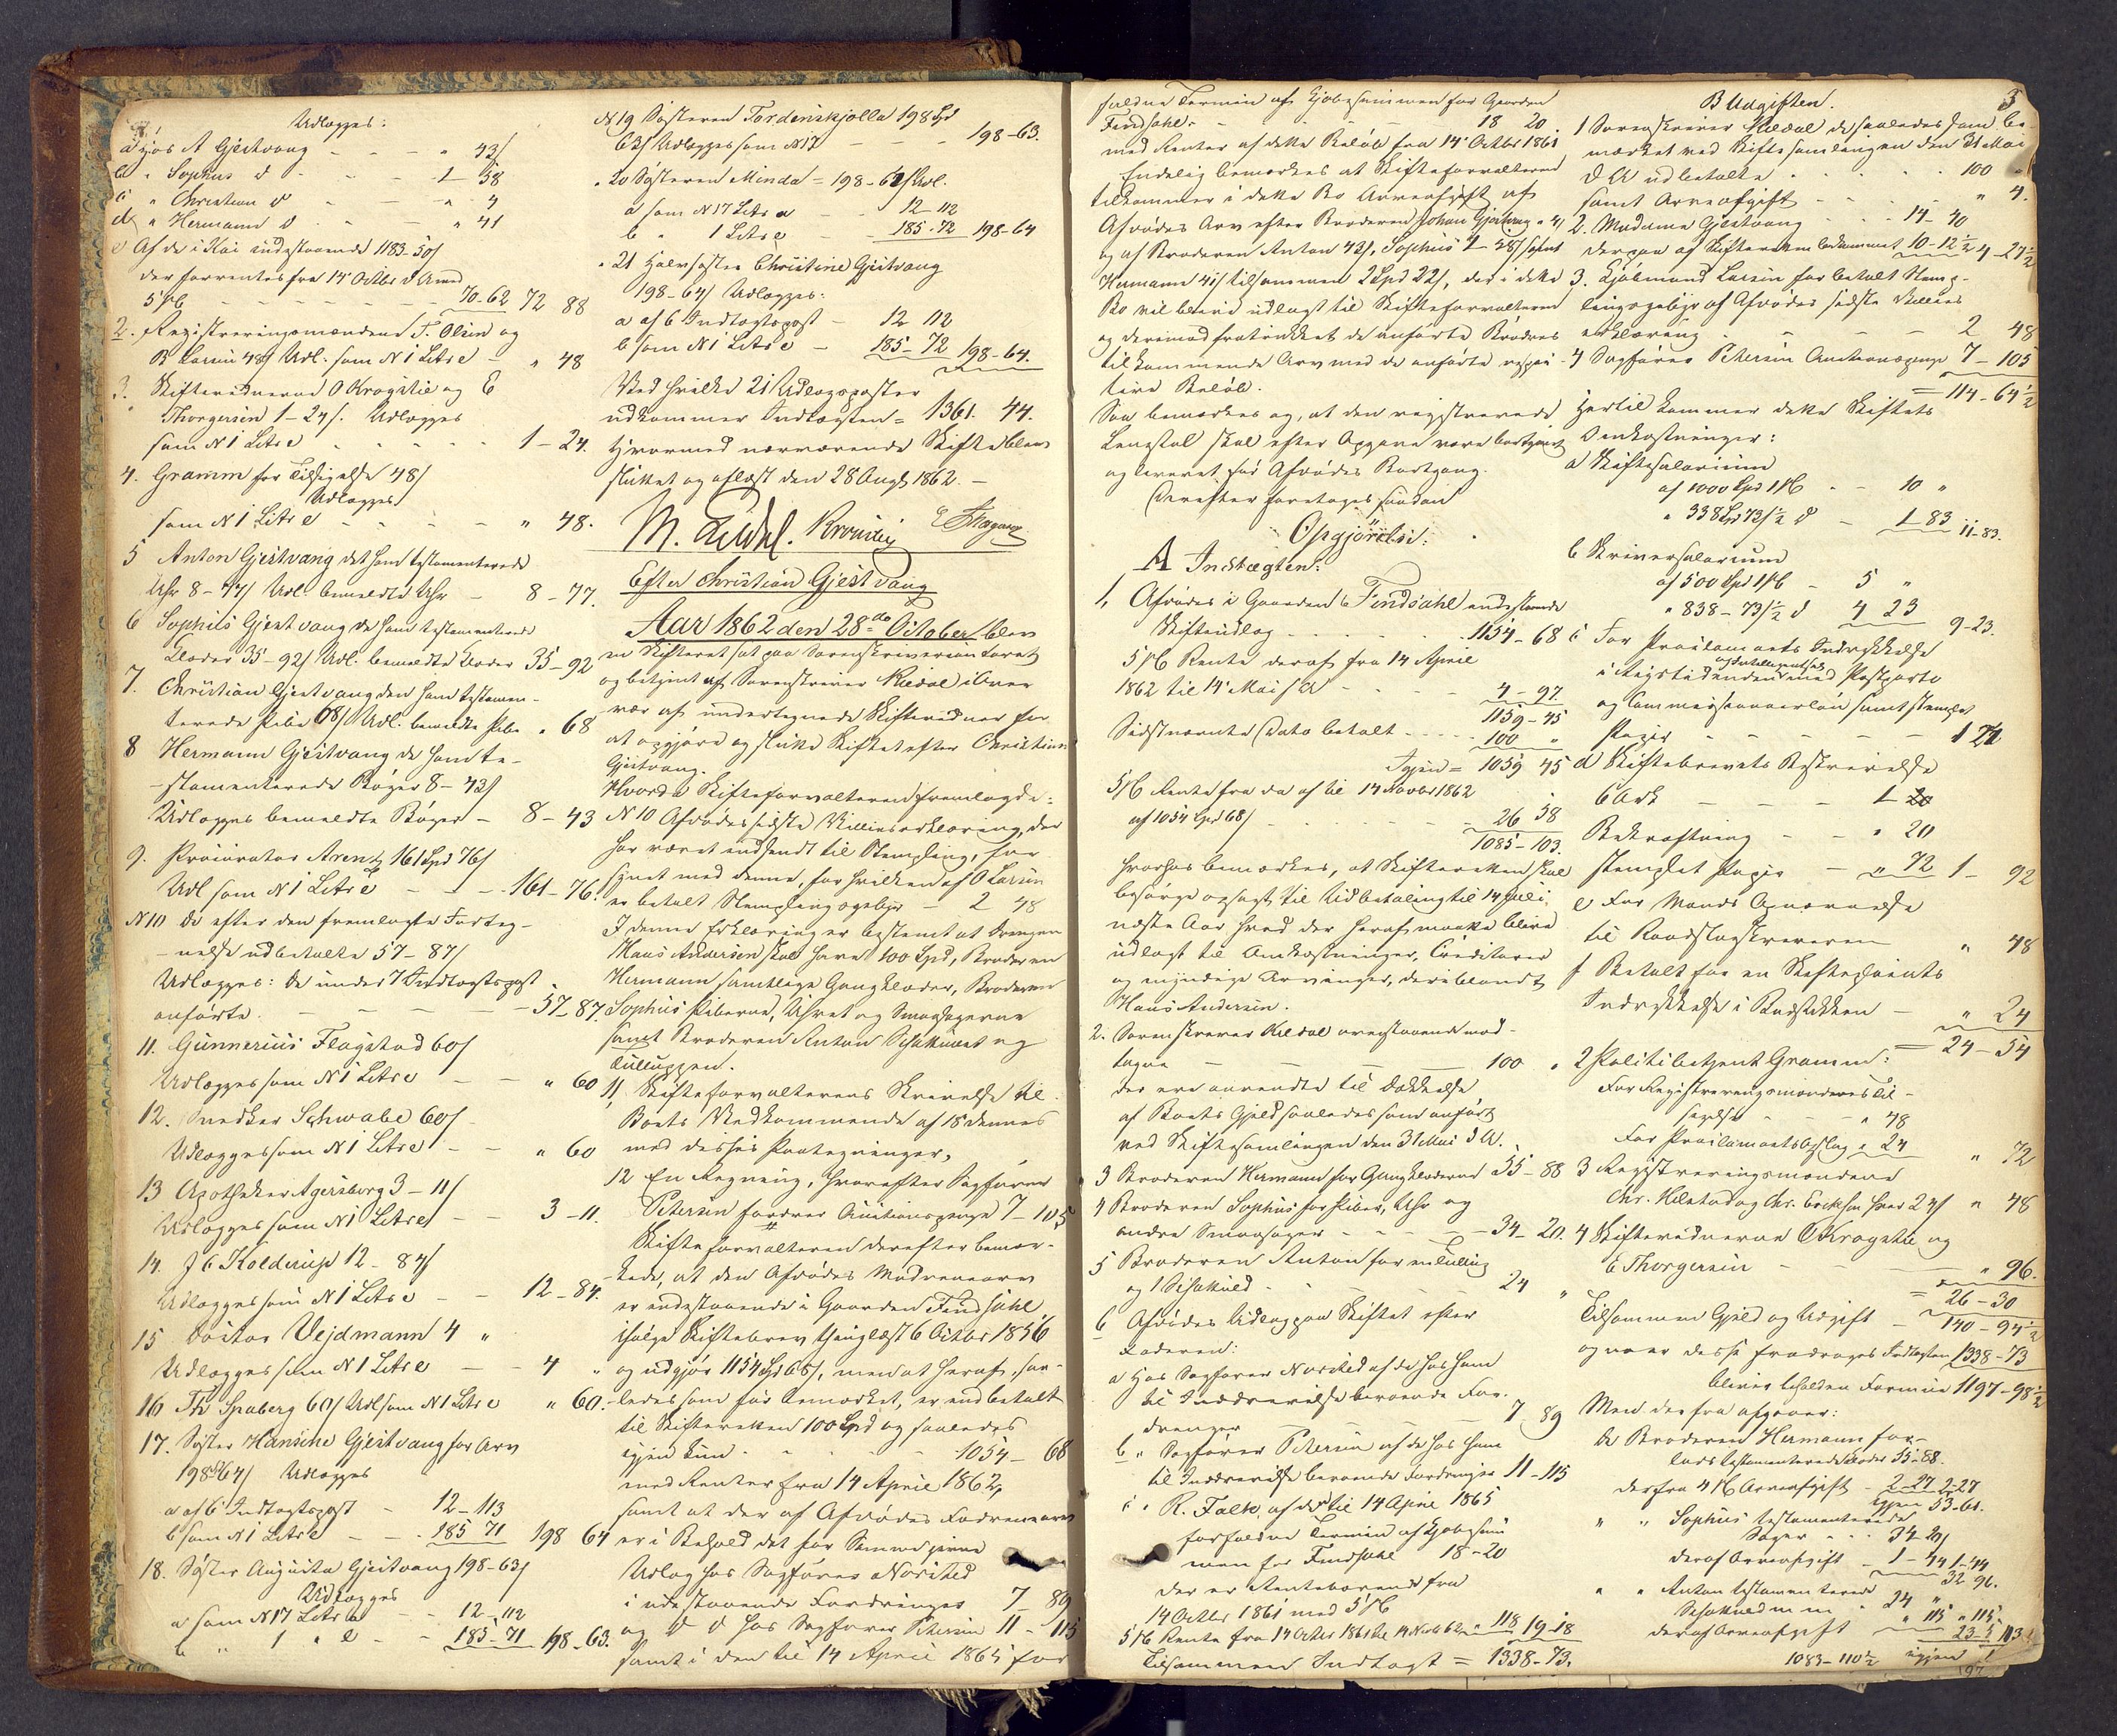 Udlægges:
a hos A Gjestvang - - - " 43/
b " Sophus d - - - 1 - 58
c " Christian d - - " 4
d " Hermann d - - " 41
e Af de i Kai indestaaende 1183-50/
der forrentes fra 14 Octbr d A med
5 pC - - - 70-62 72 88
2. Registreringsmændene T. Olsen og
B Larsen 48/ Udl. som N 1 Litr e - " 48
3. Skiftevidnerne O Krogstie og E
Thorgersen 1-24/. Udlægges
som N 1 Litr e - - - 1-24.
4. Gramm for Tilsigelse 48/
Udlægges
som N 1 Litr e - - - " 48.
5 Anton Gjestvang det ham testamenterede
Uhr 8-77/ Udl. bemeldte Uhr - 8-77.
6 Sophus Gjestvang de ham testamenterede
Klæder 35-92/ Udl. bemeldte Klæder 35-92
7. Christian Gjestvang den ham testamen-
terede Pibe 68/ Udl. bemeldte Pibe " 68
8 Hermann Gjestvang de ham te-
-stamenterede Bøger 8-43/
Udlægges bemeldte Bøger - 8-43
9. Procurator Arentz 161 Spd 76/
Udl som N 1 Litr e - - - 161-76.
N 10 De efter den fremlagte Forteg-
-nelse udbetalte 57-87/
Udlægges: De under 7 Indtægtspost
anførte - - - 57-87.
11. Gunnerius Flagstad 60/
Udlægges som N 1 Litr e - - " 60
12. Snedker Schwabe 60/
Udlægges som N 1 Litr e - - " 60
13 Apotheker Agersborg 3-11/
Udlægges som N 1 Litr e - - 3-11.
14. J C Kolderup 12-84/
Udlægges som N 1 Litr e - - 12-84.
15 Doctor Vejdmann 4 "
Udlægges som N 1 Litr e - - 4 "
16 Th Spaberg 60/ Udl som N 1 Litr e " 60.
17. Søster Hansine Gjestvang for Arv
198 Spd 64/ Udlægges
a af 6 Indtægtspost - 12-113
b som N 1 Litr e - - 185 71 198 64
18. Søster Augusta Gjestvang 198-63/
Udlægges
a som N 17 Litr a - - 12-112
b " 1 " e - - 185-71 198-63.
N 19 Søsteren Fordenskjolla 198 Spd
63/ Udlægges som N 18 - - - 198-63.
" 20 Søsteren Minda = 198-64/ Udl.
a som N 17 Litr a - 12-112
b " 1 Litr e - 185-72 198-64
" 21 Halvsøster Christine Gjestvang
198-64/ Udlægges:
a af 6 Indtægtspost - 12 112
b som N 1 Litr e - 185-72 198-64.
Ved hvilke 21 Udlægsposter
udkommer Indtægten = 1361. 44.
Hvormed nærværende Skifte blev
sluttet og oplæst den 28 Augs 1862. -
M. Kildal. Krogstie E Thorgersen
Efter Christian Gjestvang
Aar 1862 den 28de October blev
en Skifteret sat paa Sorenskrivercontoret
og betjent af Sorenskriver Kildal i Over
vær af undertegnede Skiftevidner for
at opgjøre og slutte Skiftet efter Christian
Gjestvang.
Hvorda Skifteforvalteren fremlagde:
N 10 Afdødes sidste Villieserklæring, der
har været indsendt til Stempling, for
synet med denne, for hvilken af O Larsen
er betalt Stemplingsgebyr - 2 48
I denne Erklæring er bestemt at Drengen
Hans Andersen skal have 100 Spd, Broderen
Hermann samtlige Gangklæder, Broderen
Sophus Piberne, Uhret og Smaasagerne
samt Broderen Anton Schakuldet og
Lulluppen.
11 Skifteforvalterens Skrivelse til
Boets Vedkommende af 18 dennes
med disses Paategninger,
12 En Regning, hvorefter Sagfører
Petersen fordrer Auctionspenge 7-105
Skifteforvalteren derefter bemær-
kede, at den Afdødes Mødrenearv
er indestaaende i Gaarden Findsahl
ifølge Skiftebrev thinglæst 6 Octbr 1856
og udgjør 1154 Spd 68/, men at heraf, saa-
ledes som før bemærket, er indbetalt
til Skifteretten 100 Spd og saaledes
igjen kun - - - 1054-68
med Renter fra 14 April 1862,
samt at der af Afdødes Fædrenearv
er i Behold det for Samme givne
Udlæg hos Sagfører Norsted
i udestaaende Fordringer 7-89
og d d hos Sagfører Petersen 11-115
samt i den til 14 April 1865 for
faldne Termin af Kjøbesummen for Gaarden
Findsahl - - - 18 20
med Renter af dette Beløb fra 14 Octbr 1861
Endelig bemærkes at Skifteforvalteren
tilkommer i dette Bo Arveafgift af
Afdødes Arv efter Broderen Johan Gjestvang " 4/
og af Broderen Anton 43/, Sophus 1-58/ samt
Hermann 41/ tilsammen 2 Spd 22/, der i dette
Bo vil blive udlagt til Skifteforvalteren
og derimod fratrukket de anførte Brødres
tilkommende Arv med de anførte respec-
tive Beløb.
Saa bemærkes og, at den registrerede
Lenestol skal efter Opgave være bortgivet
og leveret før Afdødes Bortgang.
Derefter foretoges saadan
Opgjørelse:
A Indtægten:
1, Afdødes i Gaarden Findsahl indestaaende
Skifteudlæg - - - 1154-68
5 pC Rente deraf fra 14 April
1862 til 14 Mai s A - - - 4-97
1159-45
Sidstnævnte Dato betalt - - - 100 "
Igjen = 1059 45
5 pC Rente fra da af til 14 Novbr 1862
af 1054 Spd 68/ - - - 26 58
1085-103.
hvorhos bemærkes, at Skifteretten skal
besørge opsagt til Udbetaling til 14 Juli
næste Aar hvad der heraf maatte blive
udlagt til Omkostninger, Creditorer
og myndige Arvinger, deriblandt
Hans Andersen.
2. Sorenskriver Kildal ovenstaaende mod-
tagne - - - 100 "
der ere anvendte til Dækkelse
af Boets Gjeld saaledes som anført
ved Skiftesamlingen den 31 Mai d A.
3 Broderen Hermann for Gangklæderne 55-88
4 Broderen Sophus for Piber, Uhr og
andre Smaasager - - - 34-20.
5 Broderen Anton for en Lullup
og 1 Schakuld - - - 24 "
6 Afdødes Udlæg paa Skiftet efter
Faderen:
a Hos Sagfører Norsted af de hos ham
til Inddrivelse beroende For-
dringer - - - 7 89
b " Sagfører Petersen af de hos ham
til Inddrivelse beroende Fordringer 11-115
c " R. Falk, af den til 14 April 1865
forfaldne Termin af Kjøbesum
men for Findsahl 18-20
der er Rentebærende fra
14 Octbr 1861 med 5 pC
5 pC Rente fra 14 Octbr 1861 til 14 Novb 62 " 118 19-18
Tilsammen Indtægt = 1338-73.
3
B Udgiften.
1 Sorenskriver Kildal de saaledes som be-
mærket ved Skiftesamlingen den 31 Mai
d A udbetalte - - - 100 "
samt Arveafgift - - - " 4.
2. Madame Gjestvang - - 14-40
derpaa af Skifteretten bekommet 10-12½ 4-27½
3. Kjøbmand Larsen for betalt Stemp-
lingsgebyr af Afdødes sidste Villies
erklæring - - - 2 48
4 Sagfører Petersen Auctionspenge 7-105
= 114-64½
Hertil kommer dette Skiftets
Omkostninger:
a Skiftesalarium
af 1000 Spd 1 pC - - 10 "
" 338 Spd 73/½ d - 1 83 11-83.
b Skriversalarium
af 500 Spd 1 pC - 5 "
" 838-73/½ d 4 23 9-23.
c For Proclamaets Indrykkelse
i Rigstidenden og Intelligentsed. med Postporto
og Commissionairløn samt stemplet
Papir - - - 1 71
d Skiftebrevets Beskrivelse
6 Ark - - - 1 20
Bekræftning - - " 20
stemplet Papir - " 72 1-92
e For Mands Opnævnelse
til Raadstueskriveren " 48
f Betalt for en Skiftepoints
Indrykkelse i Budstikken - " 24
= 24-54
2 Politibetjent Gramm:
For Registreringsmænderes Til-
sigelse - - " 48
For Proclamaets Opslag " 24 " 72
3 Registreringsmændene
Chr. Kilstad og Chr. Ericksen hver 24/ " 48
4 Skiftevidnerne O Krogstie og
E Thorgersen - - " 96.
= 26-30
Tilsammen Gjeld og Udgift - 140-94½
og naar disse fradrages Indtægten 1338-73
bliver beholden Formue 1197-98½
Men derfra afgaaer:
De Broderen Hermann for-
lods testamenterede Klæder 55-88.
derfra 4 pC Arveafgift - 2-27 2-27
Igjen 53-61.
" " Sophus testamenterede
Sager - - - 34-20/
deraf Arveafgift - 1-44 1-44
32-96.
" " Anton testamenterede
Schakuld m m " 24 "
deraf Arveafgift " 115 " 115
23-5 113
1083-110½ igjen